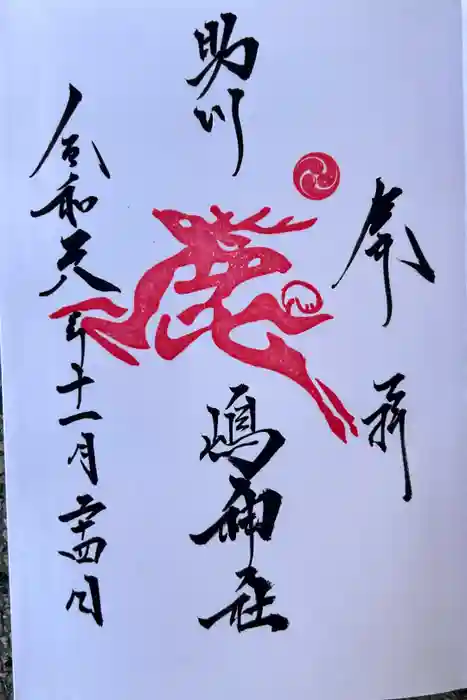 奉拝
助川
鹿
嶋神社
令和元年十一月二十四日